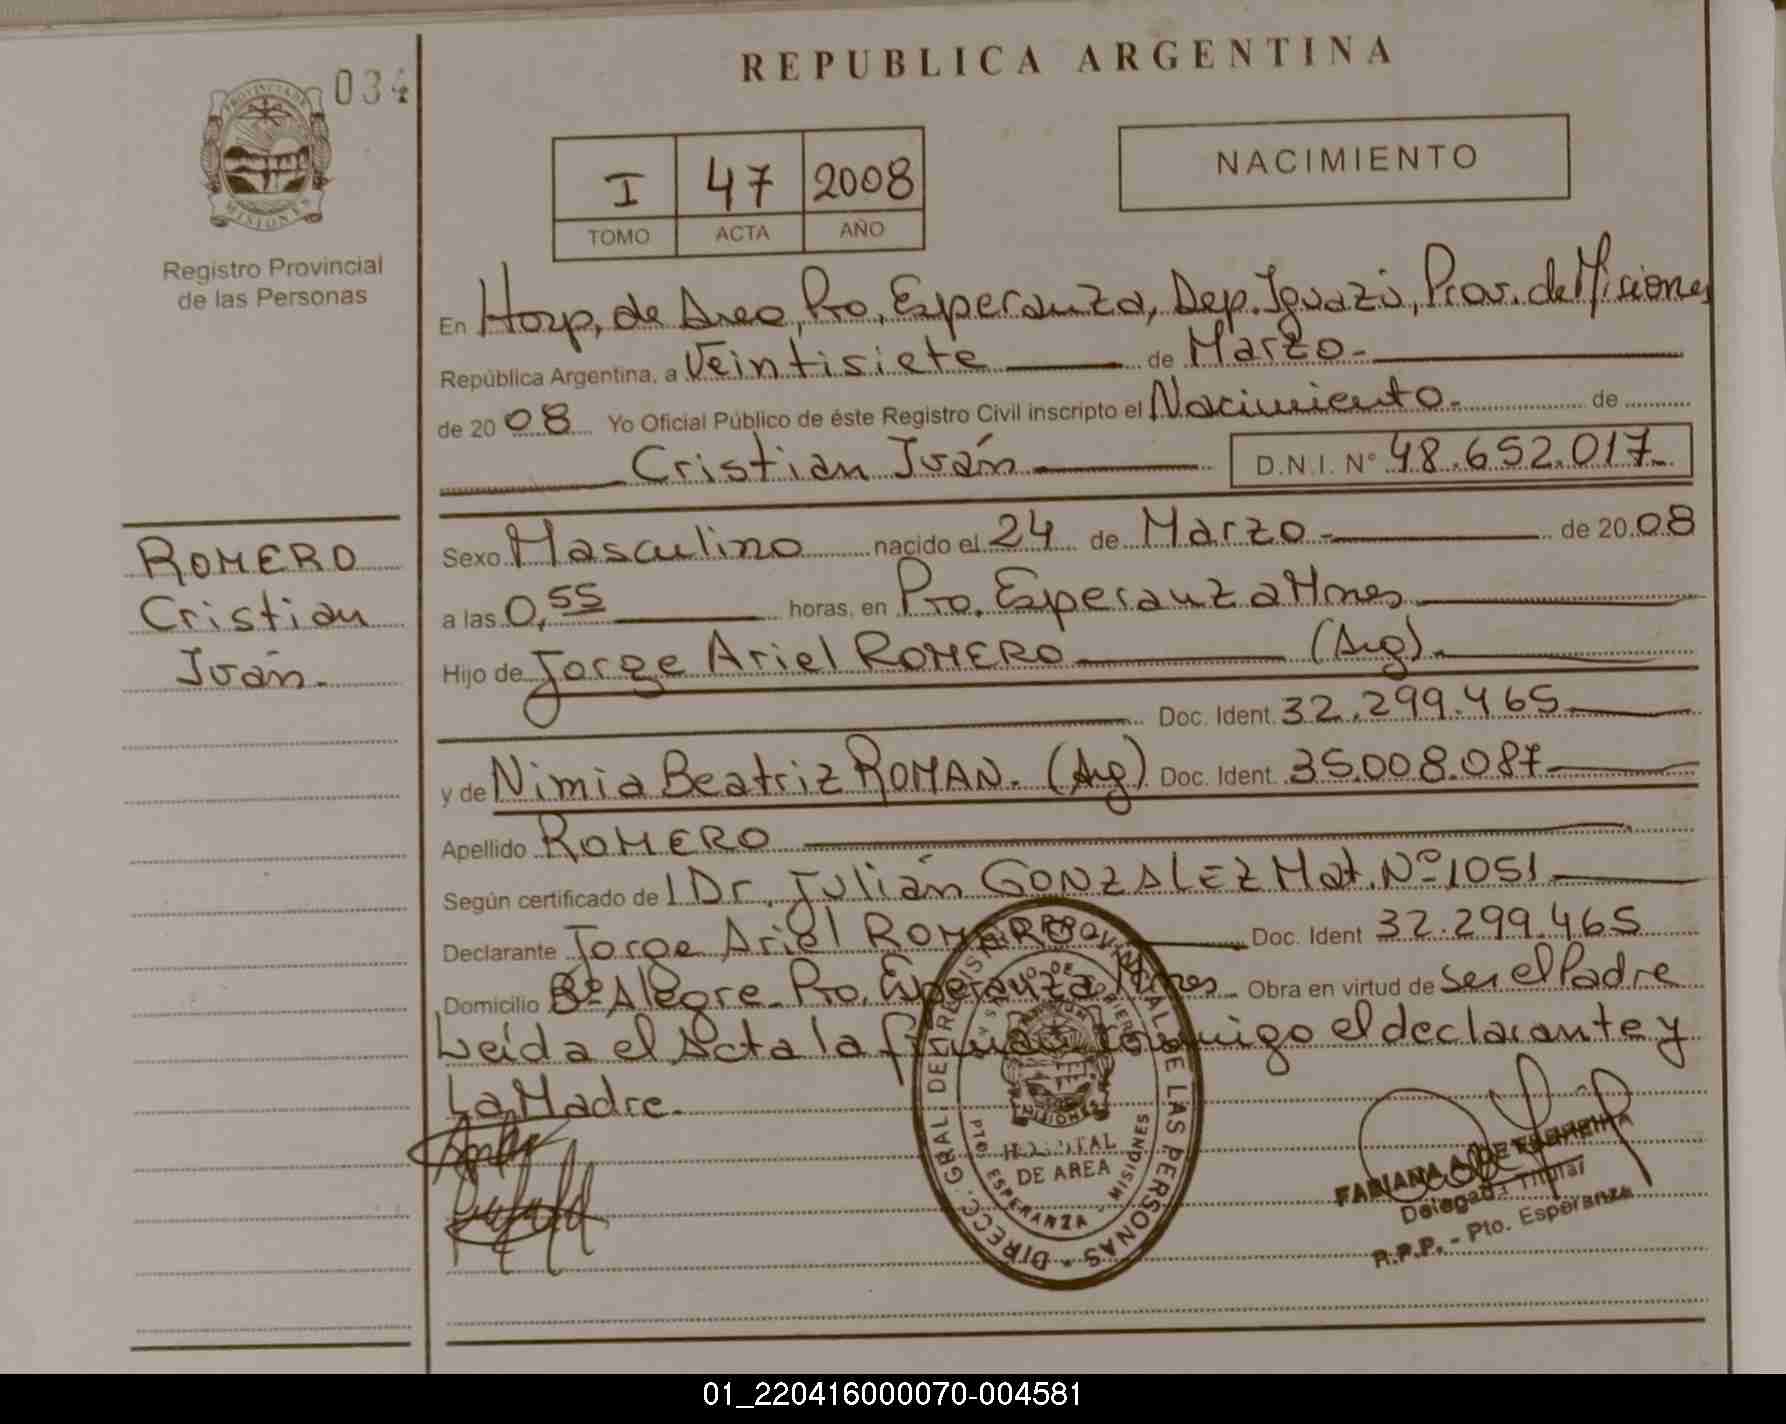 REPUBLICA ARGENTINA
034
PROVINCIA DE
MISIONES
Registro Provincial
de las Personas
I 47 2008
TOMO ACTA AÑO
NACIMIENTO
En Hosp. de Area, Pto. Esperanza, Dep. Iguazú, Prov. de Misiones
República Argentina, a Veintisiete de Marzo.
de 2008 Yo Oficial Público de éste Registro Civil inscripto el Nacimiento. de
Cristian Iván D.N.I. N° 48.652.017
ROMERO
Cristian
Iván.
Sexo Masculino nacido el 24 de Marzo de 2008
a las 0,55 horas, en Pto. Esperanza Mnes
Hijo de Jorge Ariel ROMERO (Arg).
Doc. Ident. 32.299.465
y de Nimia Beatriz ROMAN. (Arg) Doc. Ident. 35.008.087
Apellido ROMERO
Según certificado de l Dr. Julián GONZALEZ Mat. Nº 1051
Declarante Jorge Ariel ROMERO Doc. Ident 32.299.465
Domicilio Bº Alegre. Pto. Esperanza Mnes Obra en virtud de Ser el Padre
Leída el Acta la firman conmigo el declarante y
La Madre.
DIRECC. GRAL. DE REGISTRO PROVINCIAL DE LAS PERSONAS
MINISTERIO DE GOBIERNO
MISIONES
HOSPITAL
DE AREA
PTO. ESPERANZA - MISIONES
FABIANA A. DE FERREIRA
Delegada Titular
R.P.P. - Pto. Esperanza
01_220416000070-004581